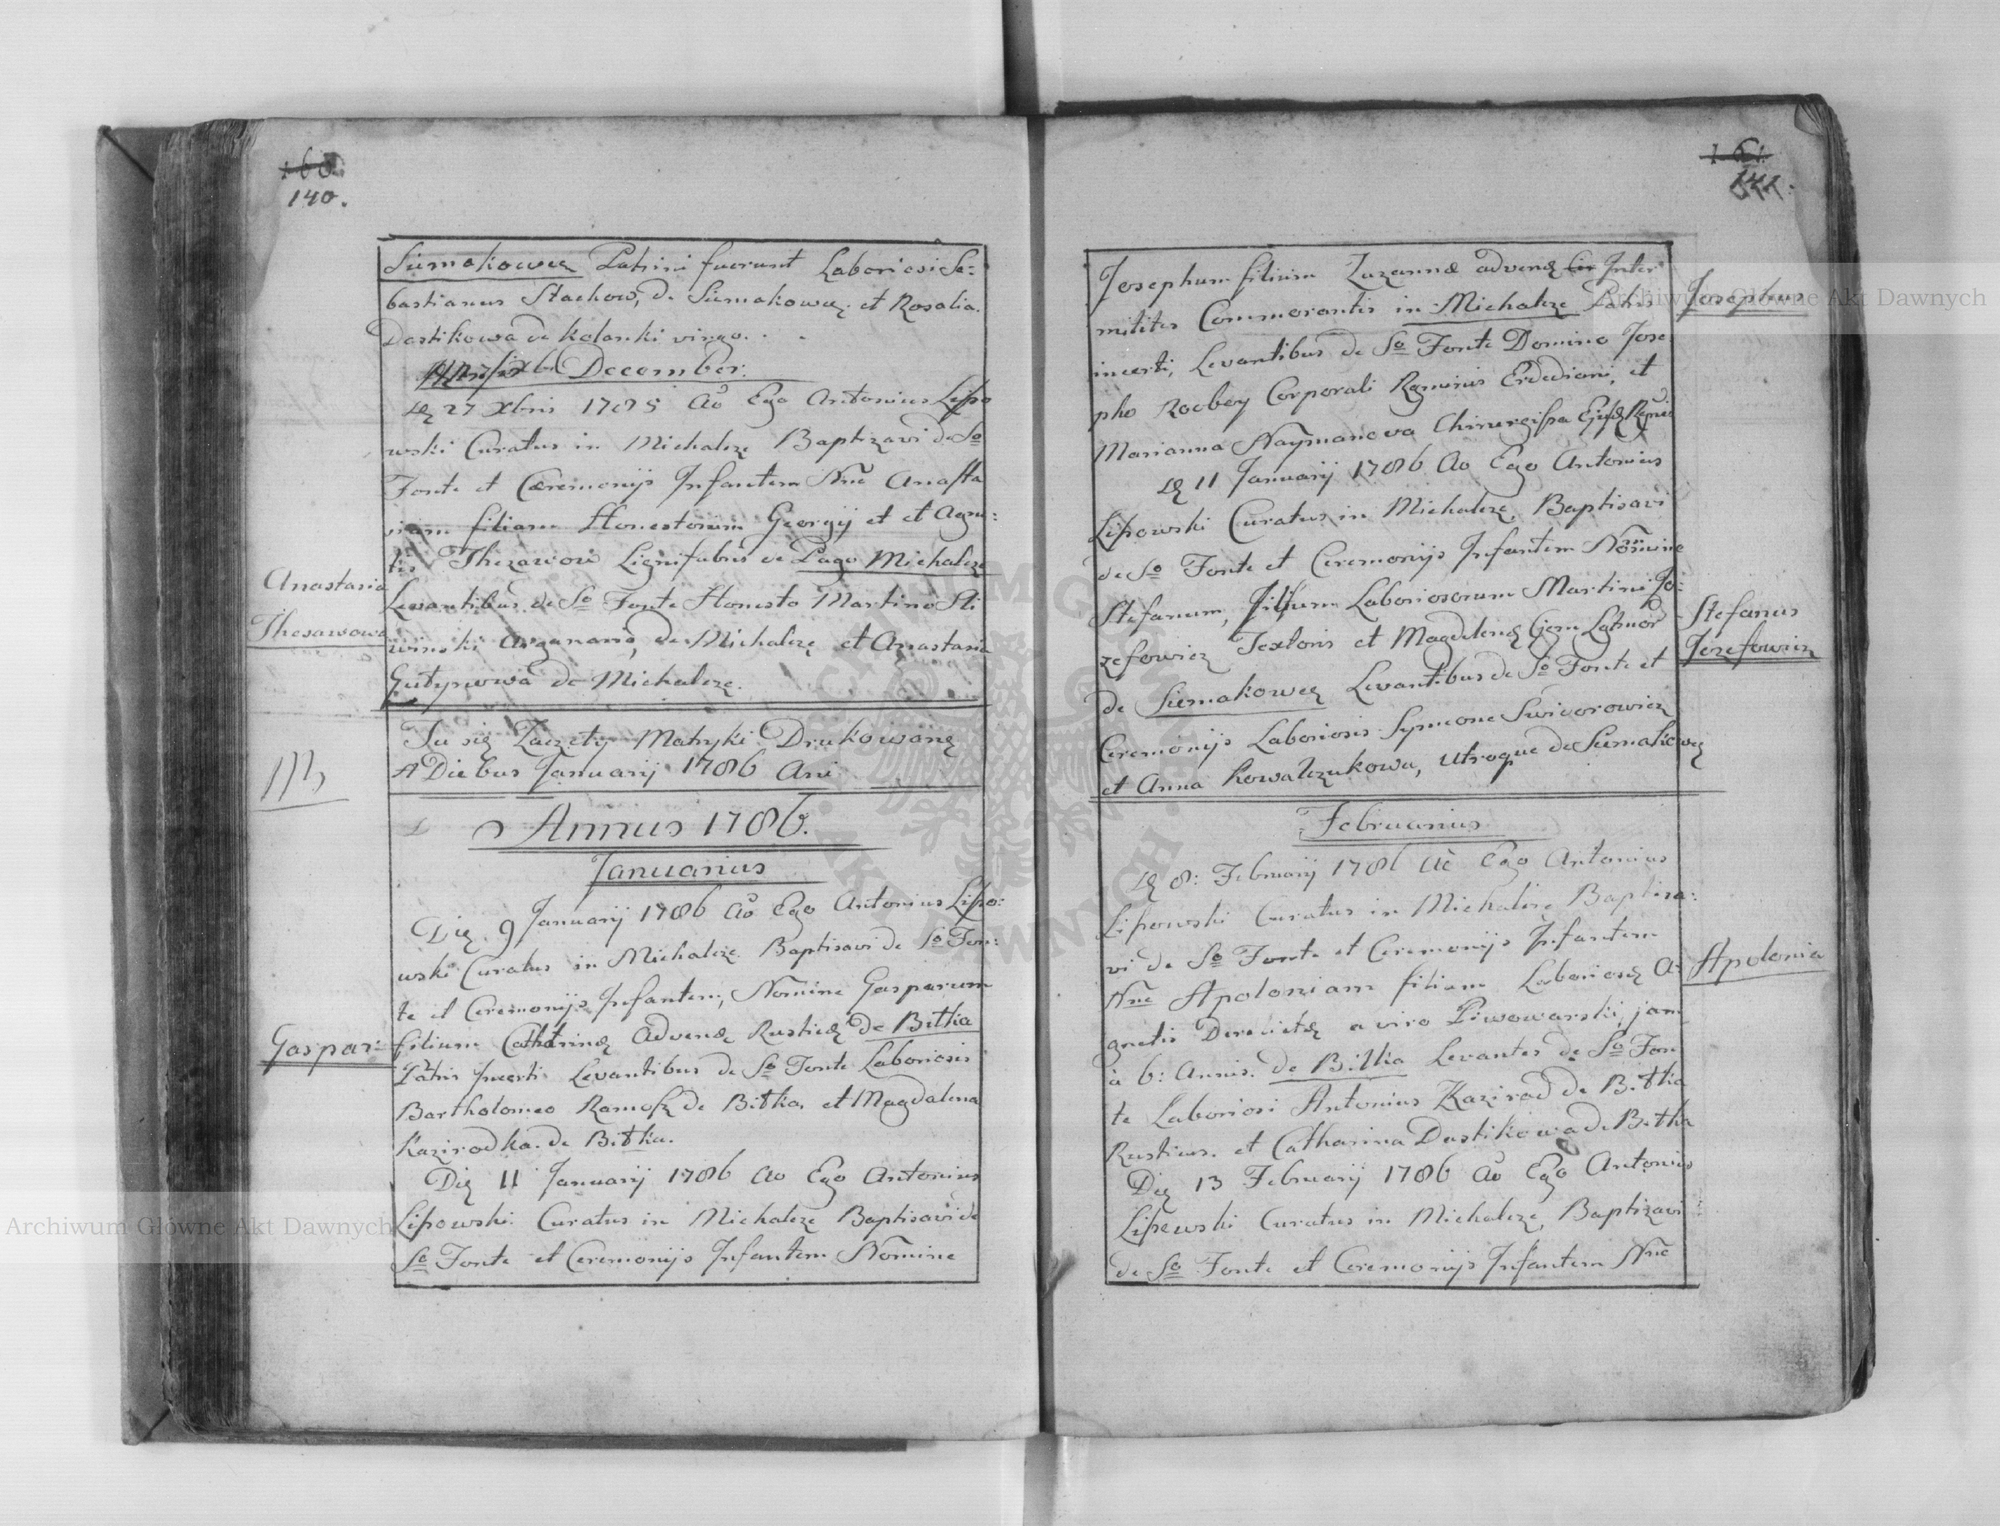 160
140.
Siemakowce Patrini fuerunt Laboriosi Se=
bastianus Stachow, de Siemakowce. et Rosalia.
Dostikowa de Kolanki virgo.
December.
Dię 27 Xbris 1785 Ao Ego Antonius Lipo
wski Curatus in Michalcze Baptizavi de So
Fonte et Cæremonijs Infantem Nne Anasta
siam filiam Honestorum Georgij et et Agne:
tis Thezarow Lignifabris de Pago Michalcze
Anastasia
Thesarowa
Levantibus de So Fonte Honesto Martino Sli
winski Organario, de Michalcze et Anastasia
Gutypwwa de Michalcze.
Tu się Zaczęły Matryki Drukowane
A Diebus Januarij 1786 Ani
Annus 1786.
Januarius
Dię 9 Januarij 1786 Ao Ego Antonius Lipo:
wski Curatus in Michalcze Baptisavi de So Fon:
te et Ceremonijs Infantem, Nomine Gasparum
Gaspar:
filium Catharinæ Advenæ Rusticæ de Bitka
Patris Incerti Levantibus de So Fonte Laboriosis
Bartholomeo Ramosz de Bitka, et Magdalena
Kazirodka de Bitka.
Dię 11 Januarij 1786 Ao Ego Antonius
Lipowski Curatus in Michalcze Baptisavi de
So Fonte et Ceremonijs Infantem Nomine
161
141.
Josephum filium Zuzannæ advenæ Inter
Josephus
milites Commorantis in Michalcze Patris
incerti, Levantibus de So Fonte Domino Jose
pho Rocbey Corporali Rgminis Erdediani, et
Marianna Naymanowa Chirurgissa Ejusd
Dię 11 Januarij 1786 Ao Ego Antonius
Lipowski Curatus in Michalcze Baptisavi
de So Fonte et Ceremonijs Infantem Nomine
Stefanum, filium Laboriosorum Martini Jo:
Stefanus
Jozefowicz
zefowicz Textoris et Magdalenæ
de Siemakowce Levantibus de So Fonte et
Ceremonijs Laboriosis Symeone Swivorowicz
et Anna Kowalczukowa, utroque de Siemakowce
Februarius
Dię 8: Februarij 1786 Ao Ego Antonius
Lipowski Curatus in Michalcze Baptisa:
vi de So Fonte et Ceremonijs Infantem
Nne Apoloniam filiam Laboriosæ A:
Apolonia
gnetis Derelictæ a viro Piwowarski, jam
à 6: Annis. de Bitka Levantes de So Fon
te Laboriosi Antonius Kazirod de Bitka
Rusticus. et Catharina Dustikowa de Bitka
Dię 13 Februarij 1786 Ao Ego Antonius
Lipowski Curatus in Michalcze, Baptizavi
de So Fonte et Ceremonijs Infantem Nne
Archiwum Główne Akt Dawnych
Archiwum Główne Akt Dawnych